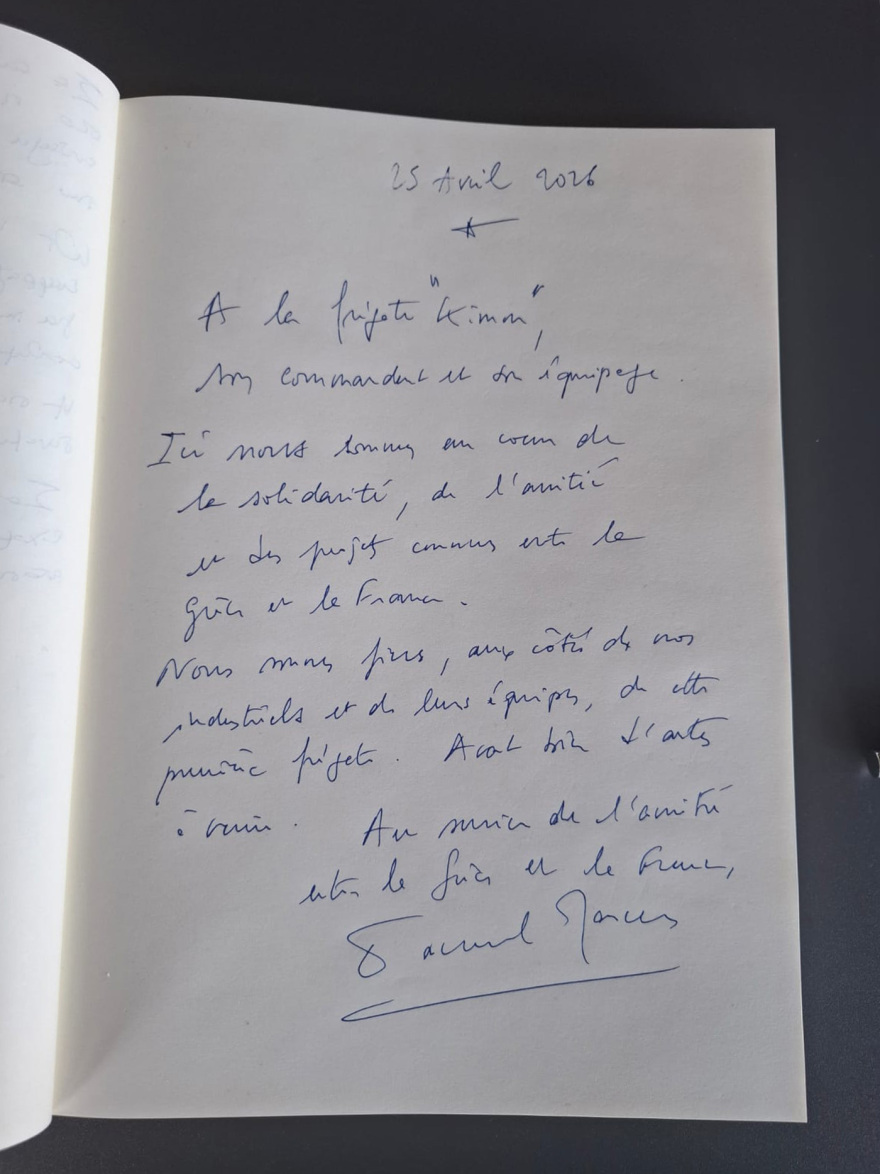 25 Avril 2026
A la frégate "Kimon",
son commandant et son équipage.
Ici nous sommes au coeur de
la solidarité, de l'amitié
et des projets communs entre la
Grèce et la France.
Nous sommes fiers, aux côtés de nos
industriels et de leurs équipes, de cette
première frégate. Avant bien d'autres
à venir. Au service de l'amitié
entre la Grèce et la France,
Emmanuel Macron